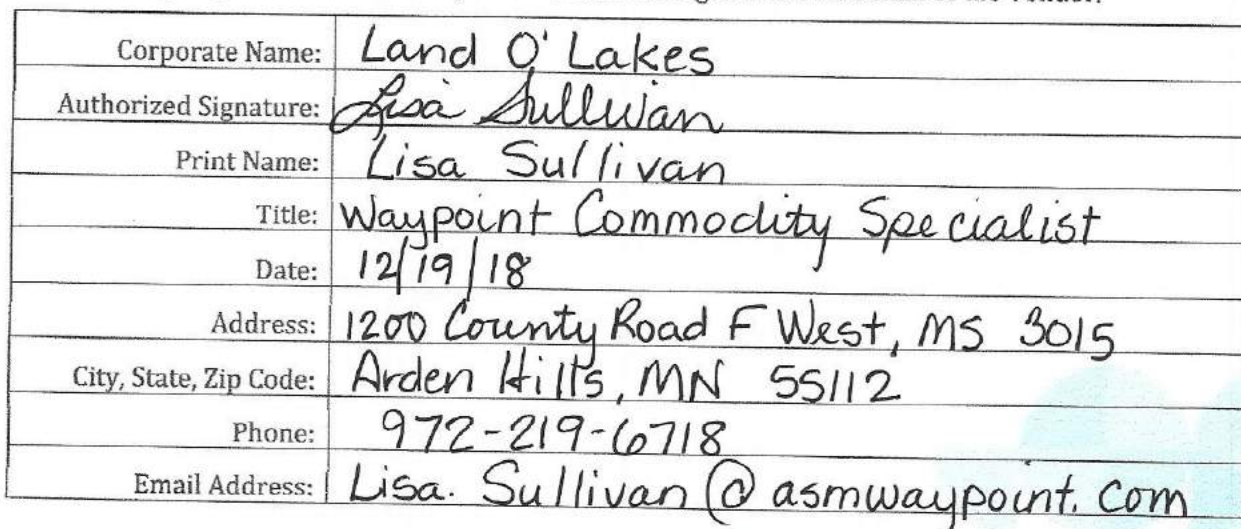 Corporate Name: Land O'Lakes
Authorized Signature: Lisa Sullivan
Print Name: Lisa Sullivan
Title: Waypoint Commodity Specialist
Date: 12/19/18
Address: 1200 County Road F West, MS 3015
City, State, Zip Code: Arden Hills, MN 55112
Phone: 972-219-6718
Email Address: Lisa.Sullivan@asmwaypoint.com